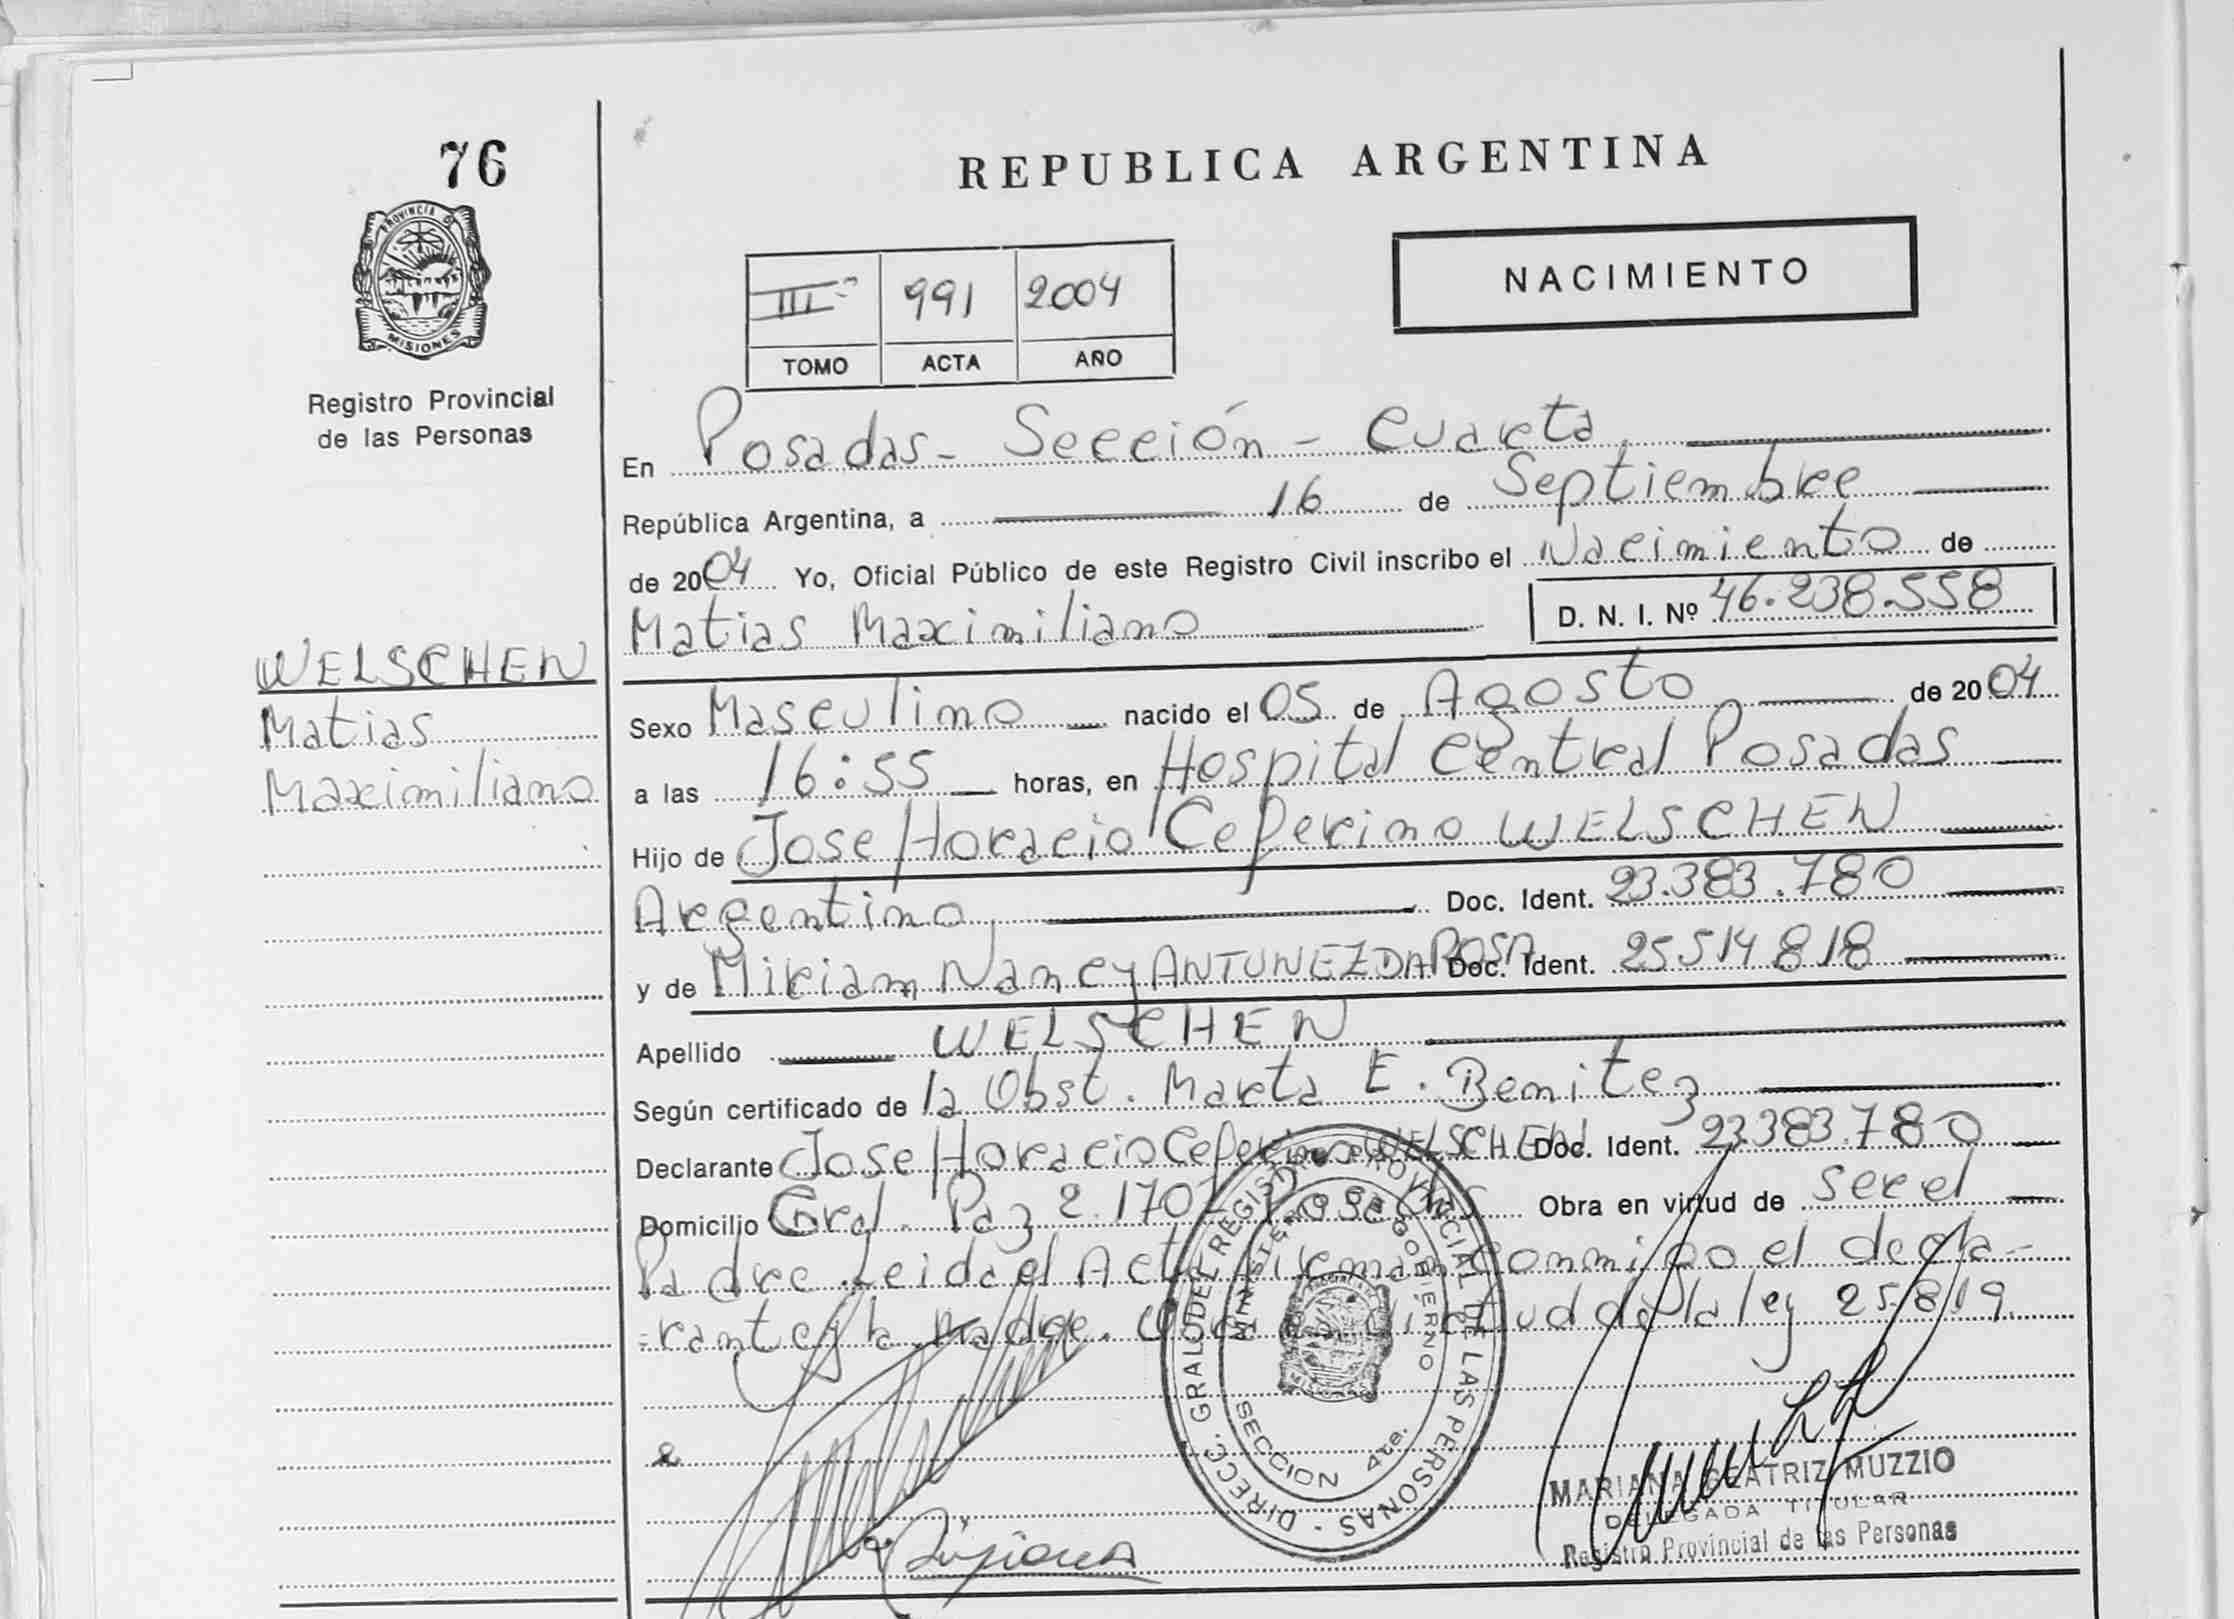 76
PROVINCIA DE
MISIONES
Registro Provincial
de las Personas
WELSCHEN
Matias
Maximiliano
REPUBLICA ARGENTINA
NACIMIENTO
III 991 2004
TOMO ACTA AÑO
En Posadas - Sección - Cuarta
República Argentina, a 16 de Septiembre
de 2004 Yo, Oficial Público de este Registro Civil inscribo el Nacimiento de
Matias Maximiliano D. N. I. Nº 46.238.558
Sexo Masculino nacido el 05 de Agosto de 2004
a las 16:55 horas, en Hospital Central Posadas
Hijo de Jose Horacio Ceferino WELSCHEN
Argentino Doc. Ident. 23.383.780
y de Miriam Nancy ANTUNEZ DA ROSA Doc. Ident. 25514818
Apellido WELSCHEN
Según certificado de la Obst. Marta E. Benitez
Declarante Jose Horacio Ceferino WELSCHEN Doc. Ident. 23.383.780
Domicilio Gral. Paz 2.170 Posadas Obra en virtud de ser el
Padre. Leida el Acta firman conmigo el decla-
-rante y la Madre. virtud de la ley 25.819.
DIRECC. GRAL. DEL REGISTRO PROVINCIAL DE LAS PERSONAS -
MINISTERIO DE GOBIERNO
SECCION 4ta.
MISIONES
MARIANA BEATRIZ MUZZIO
DELEGADA TITULAR
Registro Provincial de las Personas